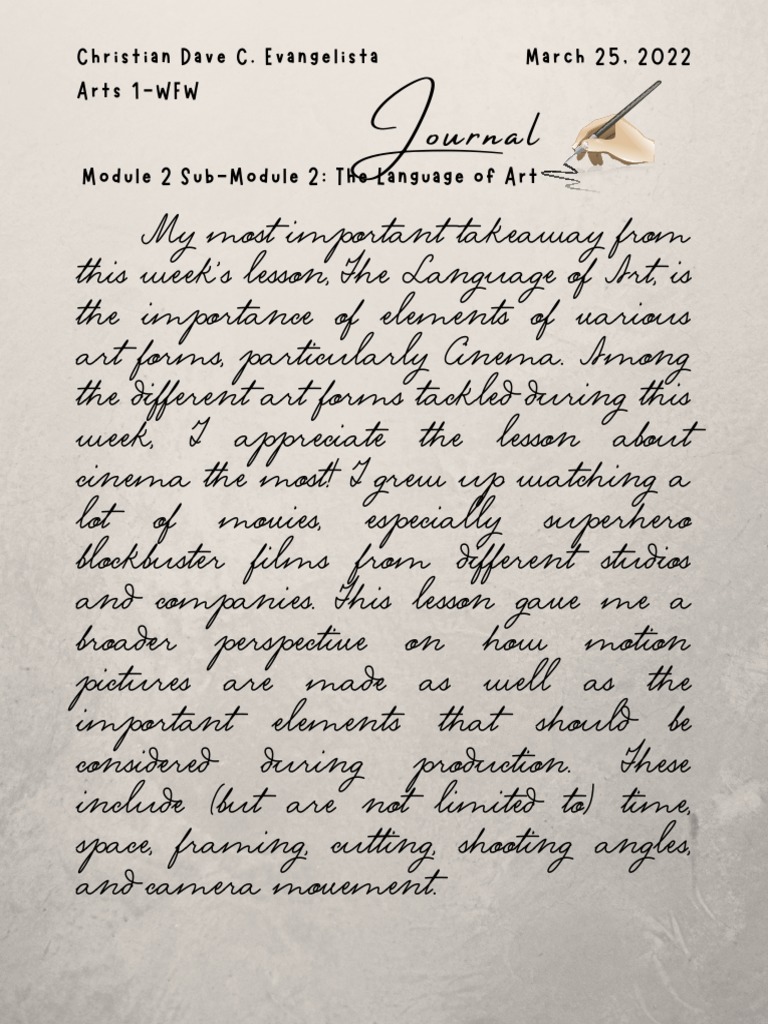 Christian Dave C. Evangelista March 25, 2022
Arts 1-WFW
Journal
Module 2 Sub-Module 2: The Language of Art
My most important takeaway from
this week's lesson, The Language of Art, is
the importance of elements of various
art forms, particularly Cinema. Among
the different art forms tackled during this
week, I appreciate the lesson about
cinema the most! I grew up watching a
lot of movies, especially superhero
blockbuster films from different studios
and companies. This lesson gave me a
broader perspective on how motion
pictures are made as well as the
important elements that should be
considered during production. These
include (but are not limited to) time,
space, framing, cutting, shooting angles,
and camera movement.